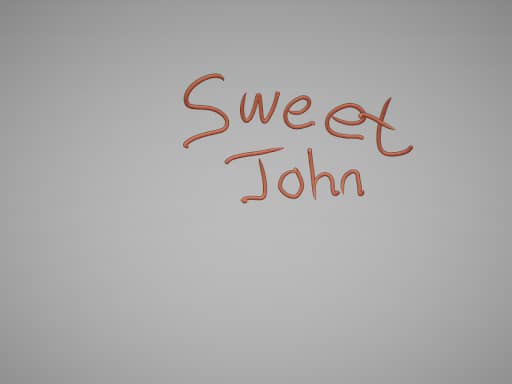 Sweet
John